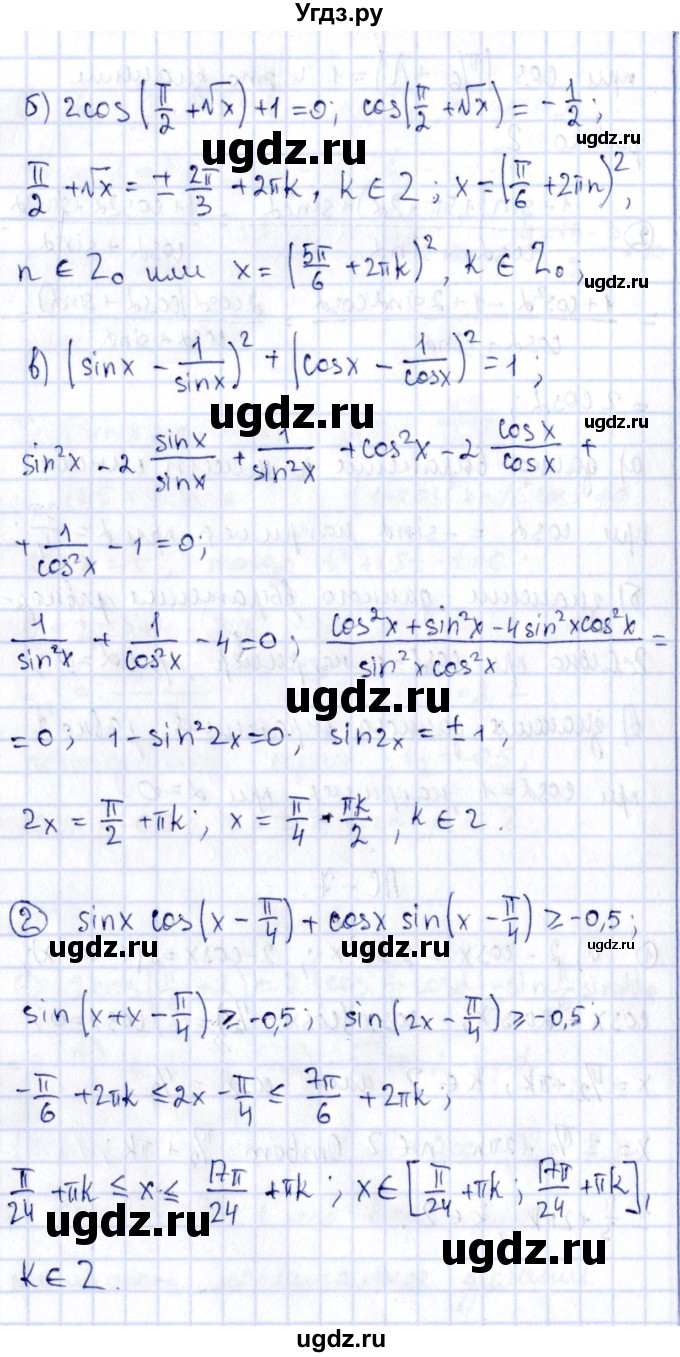 Угдз.ру
б) 2cos(π/2 + √x) + 1 = 0; cos(π/2 + √x) = - 1/2;
ugdz.ru ugdz.ru ugdz.ru
π/2 + √x = ± 2π/3 + 2πk, k ∈ Z; x = (π/6 + 2πn)²,
n ∈ Z₀ или x = (5π/6 + 2πk)², k ∈ Z₀;
ugdz.ru ugdz.ru
в) (sinx - 1/sinx)² + (cosx - 1/cosx)² = 1;
ugdz.ru ugdz.ru
sin²x - 2 · sinx/sinx + 1/sin²x + cos²x - 2 · cosx/cosx +
+ 1/cos²x - 1 = 0;
ugdz.ru ugdz.ru
1/sin²x + 1/cos²x - 4 = 0; (cos²x + sin²x - 4sin²xcos²x)/(sin²xcos²x) =
ugdz.ru
= 0; 1 - sin²2x = 0; sin2x = ± 1,
2x = π/2 + πk; x = π/4 + πk/2, k ∈ Z.
ugdz.ru ugdz.ru
② sinx cos(x - π/4) + cosx sin(x - π/4) ≥ -0,5;
ugdz.ru ugdz.ru ugdz.ru
sin(x+x - π/4) ≥ -0,5; sin(2x - π/4) ≥ -0,5;
ugdz.ru
-π/6 + 2πk ≤ 2x - π/4 ≤ 7π/6 + 2πk;
π/24 + πk ≤ x ≤ 17π/24 + πk; x ∈ [π/24 + πk; 17π/24 + πk],
ugdz.ru ugdz.ru
k ∈ Z.
ugdz.ru
ugdz.ru